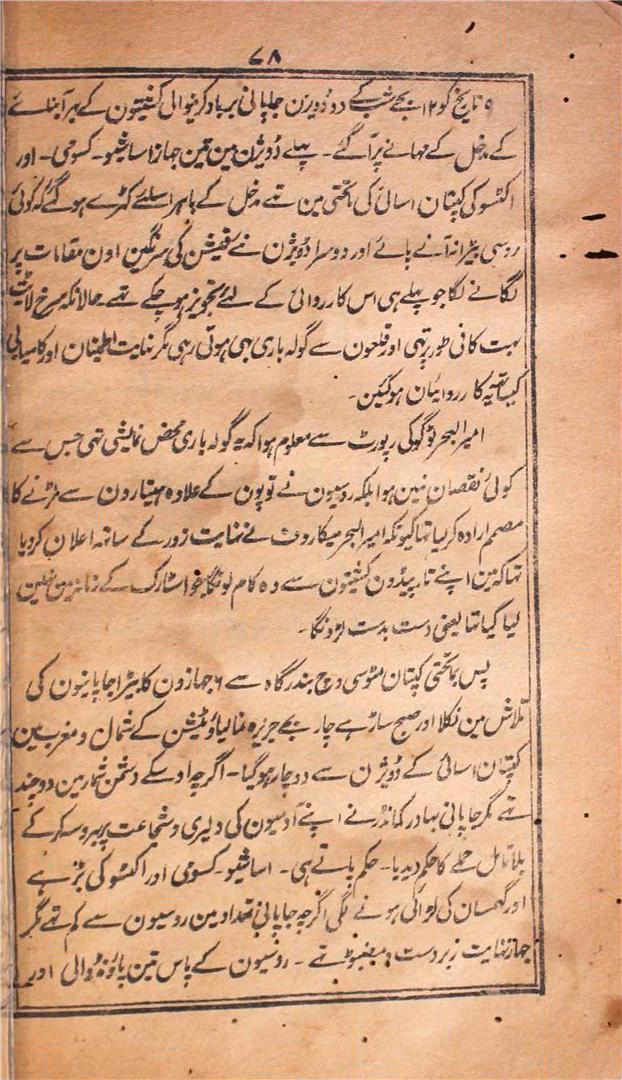 ۷۸
۹ تاریخ کو ۱۲ بجے شب کے دو ڈویژن جاپانی برباد کرنیوالی کشتیون کے بہر آبنائے
کے مدخل کے مہانے پر آگئے ۔ پہلے ڈویژن مین تین جہاز اساشیو ۔ کسومی ۔ اور
اکٹسوکی کپتان اسائی کی ماتحتی مین تہے مدخل کے باہر اسلئے کہڑے ہوگئے کہ کوئی
روسی بیڑا نہ آنے پائے اور دوسرا ڈویژن نے فیشن کی سرنگین اون مقامات پر
لگانے لگا جو پہلے ہی اس کارروائی کے لئے تجویز ہوچکے تہے ۔ حالانکہ سرخ لائیٹ
بہت کافی طور پر تہی اور قلعون سے گولہ باری بہی ہوتی رہی مگر نہایت اطمینان اور کامیابی
کیساتہہ یہ کارروایئان ہوگئین ۔
امیر البحر ٹوگو کی رپورٹ سے معلوم ہوا کہ یہ گولہ باری محض نمایشی تہی جس سے
کوئی نقصان نہین ہوا بلکہ روسیون نے توپون کے علاوہ ہتیارون سے لڑنے کا
مصمم ارادہ کرلیا تہا کیونکہ امیر البحر میکاروف نے نہایت زور کے ساتہہ اعلان کردیا
تہا کہ مین اپنے تارپیڈون کشتیون سے وہ کام لونگا جو اسٹارک کے زمانہ مین نہین
لیا گیا تہا یعنی دست بدست لڑونگا ۔
پس بماتحتی کپتان مٹوسی وچ بندرگاہ سے ۶ جہازون کا بیڑا جاپانیون کی
تلاش مین نکلا اور صبح ساڑہے چار بجے جزیرہ منالیاؤٹیشن کے شمال و مغرب مین
کپتان اسائی کے ڈویژن سے دوچار ہوگیا ۔ اگرچہ اوسکے دشمن شمار مین دوچند
تہے مگر جاپانی بہادر کمانڈر نے اپنے آدمیون کی دلیری و شجاعت پر بہروسہ کرکے
بلاتامل حملے کا حکم دیدیا ۔ حکم پاتے ہی ۔ اساشیو ۔ کسومی اور اکٹسوکی بڑہے
اور گہمسان کی لڑائی ہونے لگی اگرچہ جاپانی تعداد مین روسیون سے کم تہے مگر
جہاز نہایت زبردست و مضبوط تہے ۔ روسیون کے پاس تین پاؤنڈ والی اور